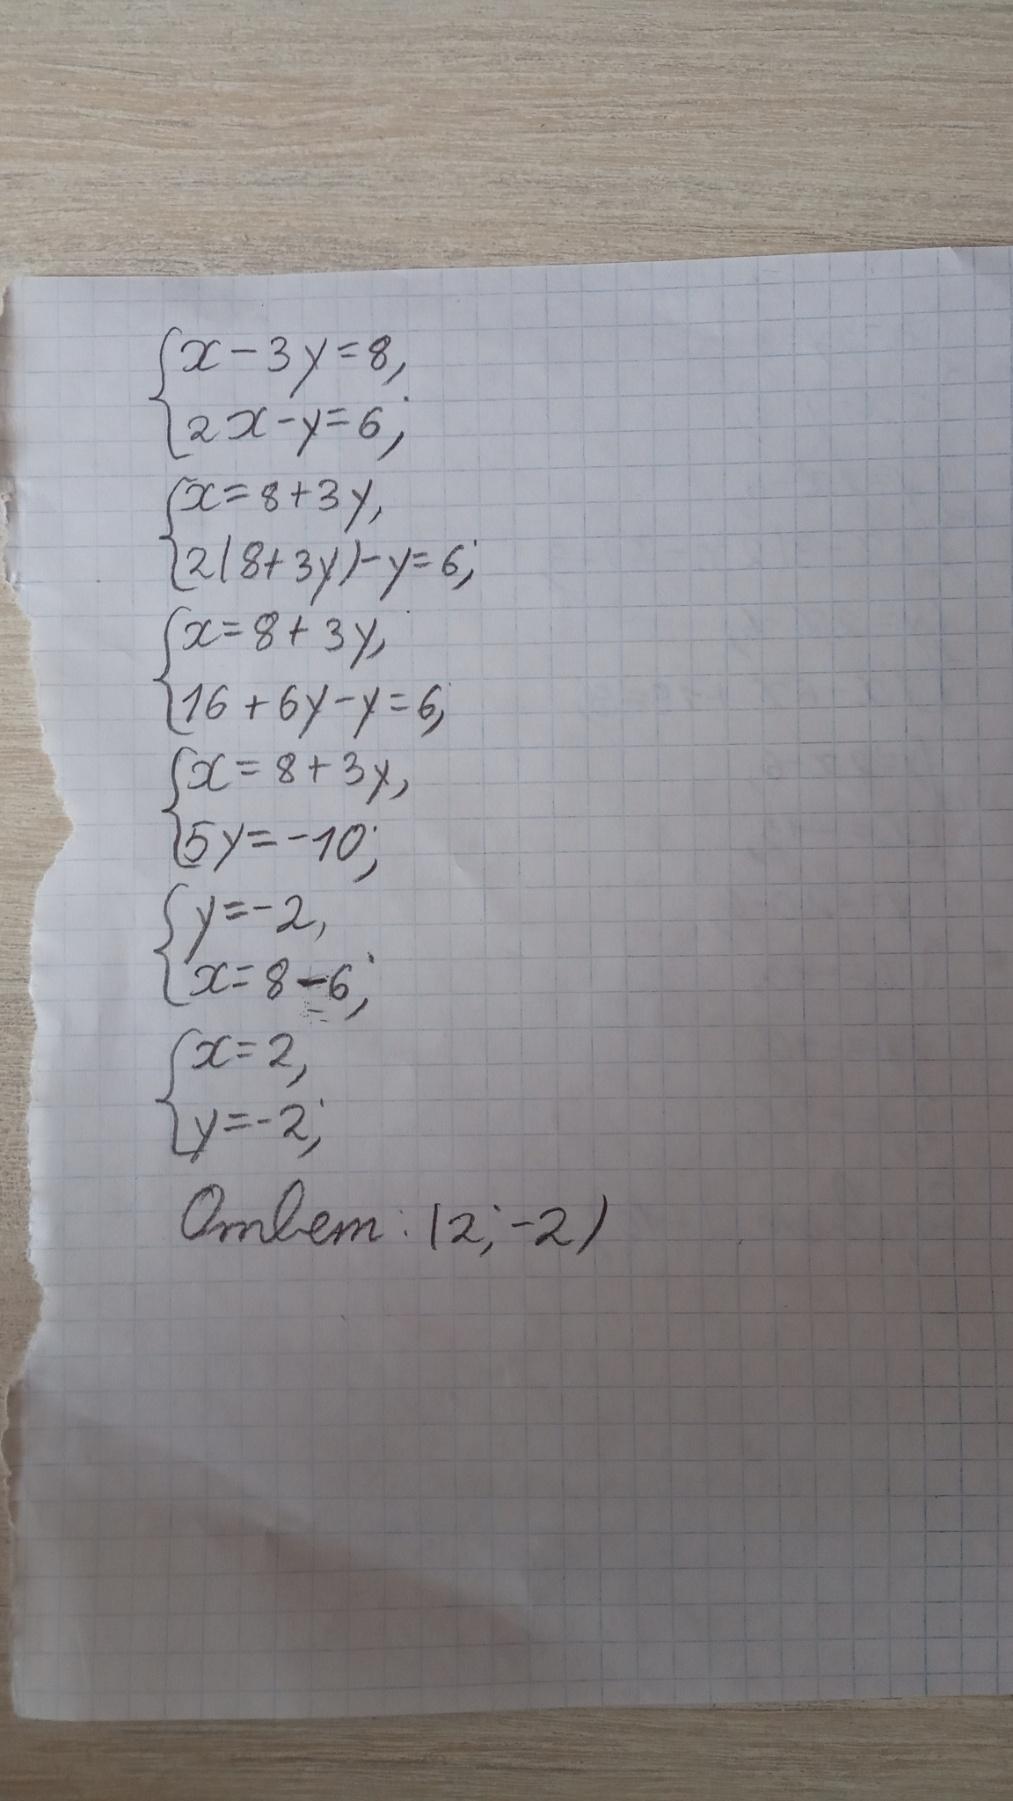 {x-3y=8,
{2x-y=6;
{x=8+3y,
{2(8+3y)-y=6;
{x=8+3y,
{16+6y-y=6;
{x=8+3y,
{5y=-10;
{y=-2,
{x=8-6;
{x=2,
{y=-2;
Ответ: (2;-2)